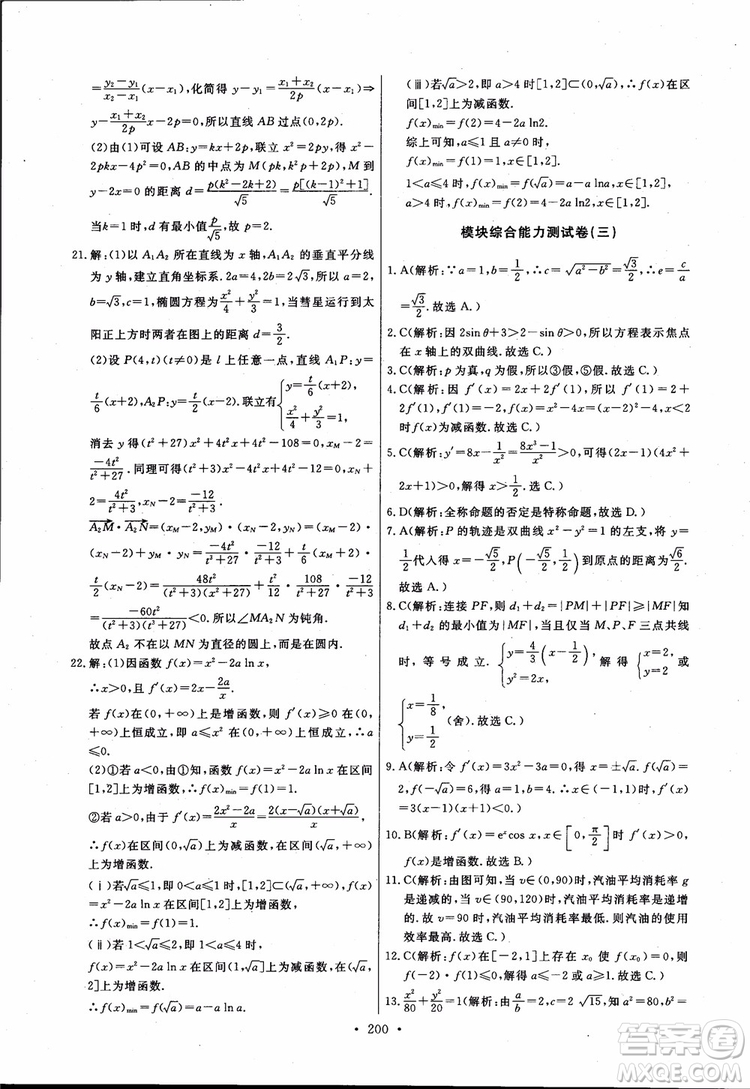 =\frac{y_2-y_1}{x_2-x_1}(x-x_1),化简得 y-y_1=\frac{x_1+x_2}{2p}(x-x_1)⇒
y-\frac{x_1+x_2}{2p}x-2p=0,所以直线 AB 过点(0,2p).
(2)由(1)可设 AB:y=kx+2p,联立 x^2=2py,得 x^2-
2pkx-4p^2=0,AB 的中点为 M(pk,k^2p+2p),M 到
y-2x=0 的距离 d=\frac{p(k^2-2k+2)}{\sqrt{5}}=\frac{p[(k-1)^2+1]}{\sqrt{5}}.
当 k=1 时,d 有最小值\frac{p}{\sqrt{5}},故 p=2.
21.解:(1)以 A_1A_2 所在直线为 x 轴,A_1A_2 的垂直平分线
为 y 轴,建立直角坐标系.2a=4,2c=2,则 a=2,c=1,
b=\sqrt{3},椭圆方程为\frac{x^2}{4}+\frac{y^2}{3}=1.当彗星运行到太
阳正上方时两者在图上的距离 d=\frac{3}{2}.
(2)设 P(4,t)(t≠0)为 l 上任意一点,直线 A_1P:y=
\frac{t}{6}(x+2),A_2P:y=\frac{t}{2}(x-2).联立有{y=\frac{t}{6}(x+2), \frac{x^2}{4}+\frac{y^2}{3}=1,
消去 y 得(t^2+27)x^2+4t^2x+4t^2-108=0,x_M-2=
\frac{-4t^2}{t^2+27}.同理可得(t^2+3)x^2-4t^2x+4t^2-12=0,x_N+
2=\frac{4t^2}{t^2+3},x_N-2=\frac{-12}{t^2+3}.
\overrightarrow{A_2M}·\overrightarrow{A_2N}=(x_M-2)(x_N-2)+y_My_N=(x_M-2)·
(x_N-2)+y_M·\frac{t}{2}(x_N-2)=\frac{-4t^2}{t^2+27}·\frac{-12}{t^2+3}+\frac{t}{6}(x_M+2)·
\frac{t}{2}(x_N-2)=\frac{48t^2}{(t^2+3)(x^2+27)}+\frac{t^2}{12}·\frac{108}{t^2+27}·\frac{-12}{t^2+3}=
\frac{-60t^2}{(t^2+3)(t^2+27)}<0.所以∠MA_2N 为钝角.
故点 A_2 不在以 MN 为直径的圆上,而是在圆内.
22.解:(1)因函数 f(x)=x^2-2a ln x,
∴x>0,f'(x)=2x-\frac{2a}{x}.
若 f(x)在(0,+∞)上是增函数,则 f'(x)≥0 在(0,+
∞)上恒成立,即 a≤x^2 在(0,+∞)上恒成立,∴a
≤0.
(2)①若 a<0,由①知,函数 f(x)=x^2-2a ln x 在区间
[1,2]上为增函数,∴f(x)_{min}=f(1).
②若 a>0,由于 f'(x)=\frac{2x^2-2a}{x}=\frac{2(x-\sqrt{a})(x+\sqrt{a})}{x}
∴f(x)在区间(0,\sqrt{a})上为减函数,在区间(\sqrt{a},+∞)
上为增函数.
(ⅰ)若\sqrt{a}≤1,即 0<a≤1 时,[1,2]⊂(\sqrt{a},+∞),
∴f(x)在区间[1,2]上为增函数.
∴f(x)_{min}=f(1)=1.
(ⅱ)若 1<\sqrt{a}≤2,即 1<a≤4 时,
f(x)在区间(1,\sqrt{a})上为减函数,在区间(\sqrt{a},
2]上为增函数,
∴f(x)_{min}=f(\sqrt{a})=a-a lna.
(ⅲ)若\sqrt{a}>2,即 a>4 时[1,2]⊂(0,\sqrt{a}),∴f(x)在区
间[1,2]上为减函数.
f(x)_{min}=f(2)=4-2a ln2.
综上可知,a≤1 且 a≠0 时,
f(x)_{min}=f(1)=1.
1<a≤4 时,f(x)=f(\sqrt{a})=a-a lna,f(x)_{min}=1,
a>4 时,f(x)_{min}=f(2)=4-2a ln2.
模块综合能力测试卷(三)
1.A(解析:∵a=1,b=\frac{1}{2},∴c=\sqrt{a^2-b^2}=\frac{\sqrt{3}}{2},∴e=\frac{c}{a}=
\frac{\sqrt{3}}{2}.故选 A.)
2.C(解析:因 2sinθ+3>2-5<0,所以方程表示焦点
在 x 轴上的双曲线.故选 C.)
3.C(解析:p 为真,q 为假,所以③假,⑤假.故选 C.)
4.C(解析:因 f'(x)=2x+2f'(1),所以 f'(1)=2+
2f'(1),f'(1)=-2,f(x)=x^2-4x=(x-2)^2-4,x<2
时 f(x)为减函数.故选 C.)
5.C(解析:y'=8x-\frac{1}{x^2}=\frac{8x^3-1}{x^2}>0,(2x-1)(4x^2+
2x+1)>0,x>\frac{1}{2}.故选 C.)
6.D(解析:全称命题的否定是特称命题,故选 D.)
7.A(解析:P 的轨迹是双曲线 x^2-y^2=1 的左支,将 y=
\frac{1}{2}代入得 x=-\frac{\sqrt{5}}{2},P(-\frac{\sqrt{5}}{2},\frac{1}{2})到原点的距离为\frac{\sqrt{6}}{2}.
故选 A.)
8.C(解析:连接 PF,则 d_1+d_2=|PM|+|PF|≥|MF|,
d_1+d_2 的最小值为|MF|,当且仅当 M、P、F 三点共线
时,等号成立.{y=\frac{4}{3}(x-\frac{1}{2}) y^2=2x 解得{x=2 y=2 或
{x=\frac{1}{8} y=\frac{1}{2} (舍).故选 C.)
9.A(解析:令 f'(x)=3x^2-3a=0,得 x=±\sqrt{a}.f(-\sqrt{a})=
2,f(\sqrt{a})=6,得 a=1,b=4.∴x∈(-1,1)时,f'(x)=
3(x-1)(x+1)<0.故选 A.)
10.B(解析:f'(x)=e^x cos x,x∈[0,\frac{π}{2}]时 f'(x)≥0,
∴f(x)是增函数.故选 B.)
11.C(解析:由图可知,当 v∈(0,90)时,汽油平均消耗率 g
是递减的,当 v∈(90,120)时,汽油平均消耗率是递增
的.故 v=90 时,汽油平均消耗率最低.则汽油的使用
效率最高.故选 C.)
12.C(解析:f(x)在[-2,1]上存在 x_0 使 f(x_0)=0,则
f(-2)·f(1)≤0,解得 a≤-2 或 a≥1.故选 C.)
13.\frac{x^2}{80}+\frac{y^2}{20}=1(解析:由\frac{a}{b}=2,c=2\sqrt{15},知 a^2=80,b^2=
· 200 ·
答案圈
MXQE.COM